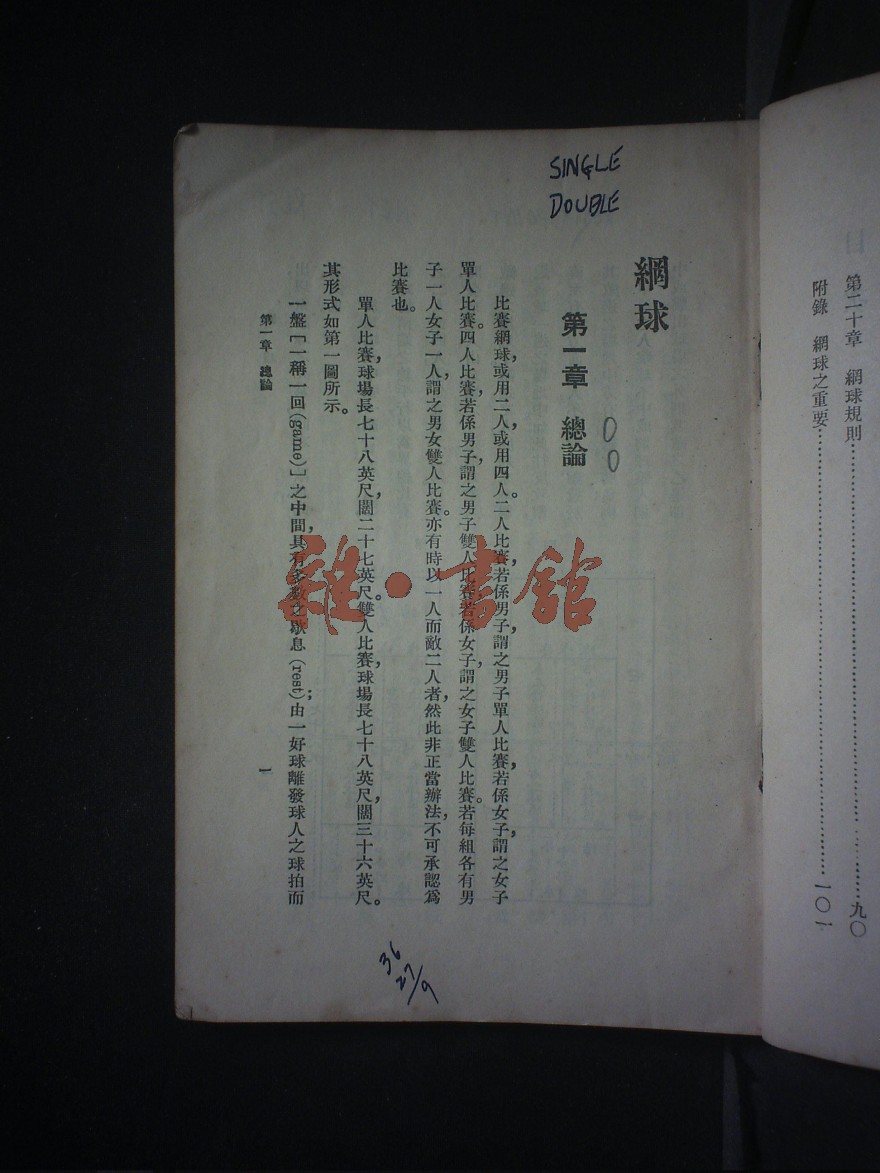 第二十章　網球規則……………………九〇
附錄　網球之重要……………………一〇一
SINGLE
DOUBLE
網球
第一章　總論
比賽網球，或用二人，或用四人。二人比賽，若係男子，謂之男子單人比賽，若係女子，謂之女子
單人比賽。四人比賽，若係男子，謂之男子雙人比賽，若係女子，謂之女子雙人比賽。若每組各有男
子一人女子一人，謂之男女雙人比賽。亦有時以一人而敵二人者，然此非正當辦法，不可承認爲
比賽也。
單人比賽，球場長七十八英尺，闊二十七英尺。雙人比賽，球場長七十八英尺，闊三十六英尺。
其形式如第一圖所示。
一盤［一稱一回(game)］之中間，具有多數之歇息(rest)；由一好球離發球人之球拍而
第一章　總論
一
36
27/9
雜·書館